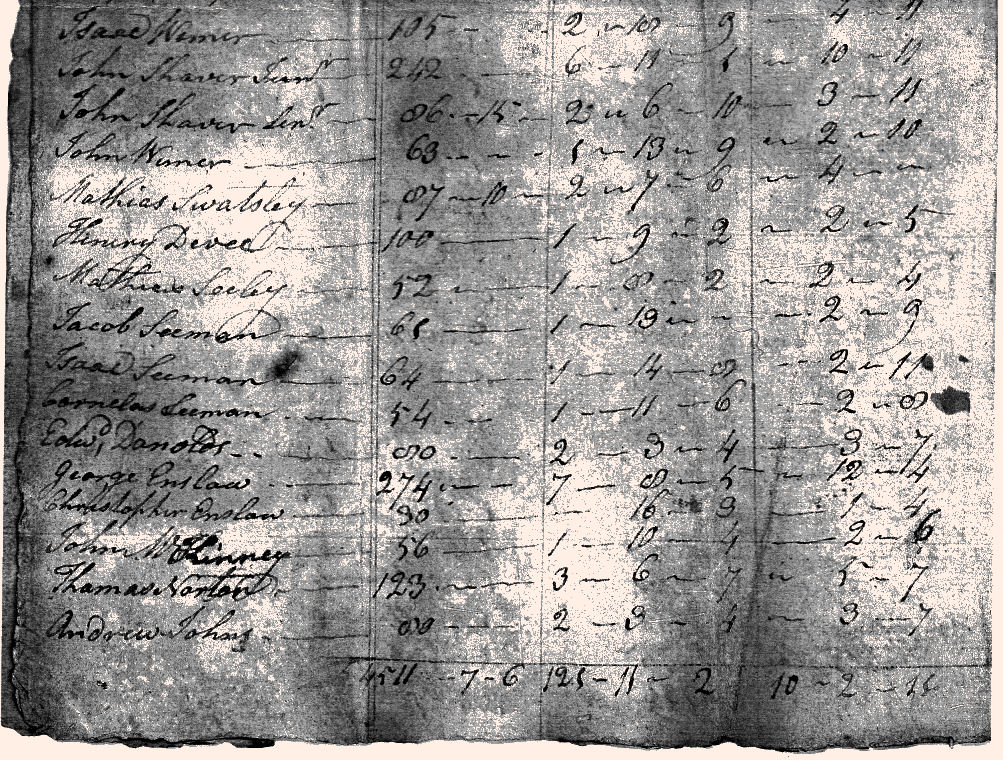 Isaac Wemer 105 - - 2 - 18 9 4 - 11
John Shaver Junr 242 6 - 11 - 1 10 - 11
John Shaver Senr 86 - 15 - 2 - 6 - 10 3 - 11
John Wemer 63 - - - 1 - 13 - 9 2 - 10
Mathias Swatsley 87 - 10 - 2 - 7 - 6 4 - -
Henry Devee 100 1 - 9 - 2 2 - 5
Mathew Seeley 52 1 - 8 - 2 2 - 4
Jacob Seeman 61 1 - 13 - - 2 - 9
Isaac Seeman 64 1 - 14 - 8 2 - 11
Cornelas Seeman 54 1 - 11 - 6 2 - 8
Edwd 80 2 - 3 - 4 3 - 7
George Enslaw 274 7 - 8 - 5 12 - 4
Christopher Enslaw 30 16 - 3 1 - 4
John McKinney 56 1 - 10 - 4 2 - 6
Thomas Norton 123 3 - 6 - 7 5 - 7
Andrew Johns 80 2 - 3 - 4 3 - 7
4511 - 7 - 6 121 - 11 - 2 10 - 2 - 11